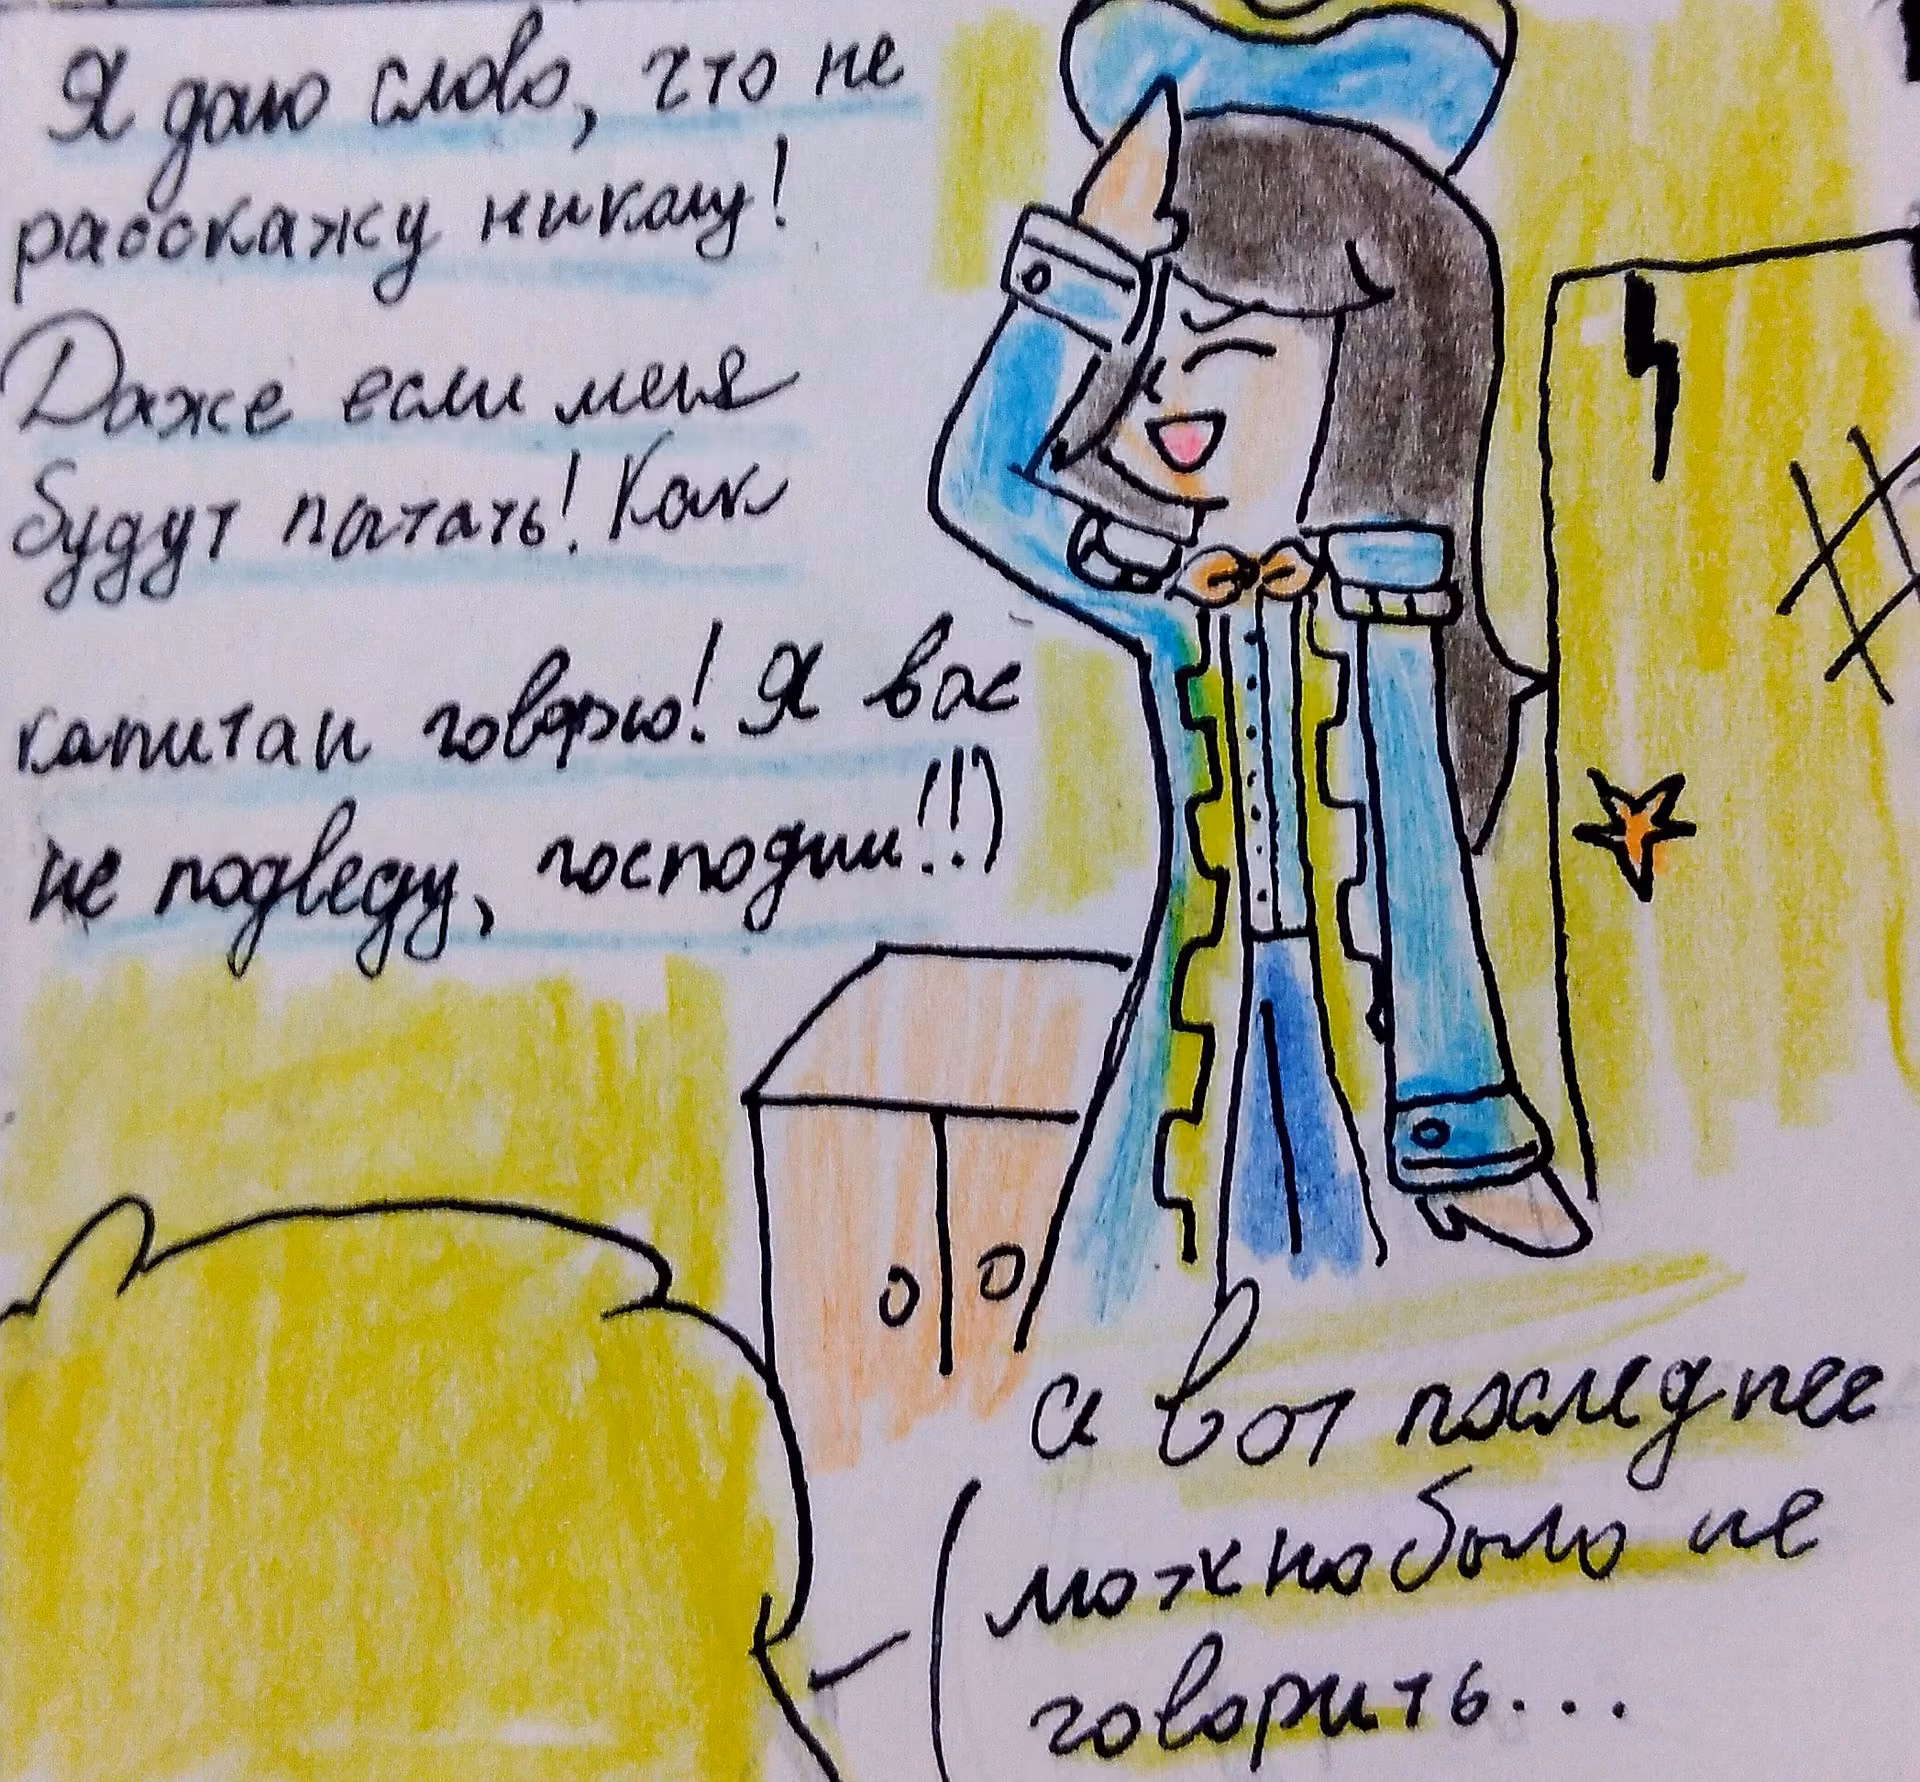 Я даю слово, что не
расскажу никому!
Даже если меня
будут пытать! Как
капитан говорю! Я вас
не подведу, господин!!)
а вот последнее
можно было не
говорить...